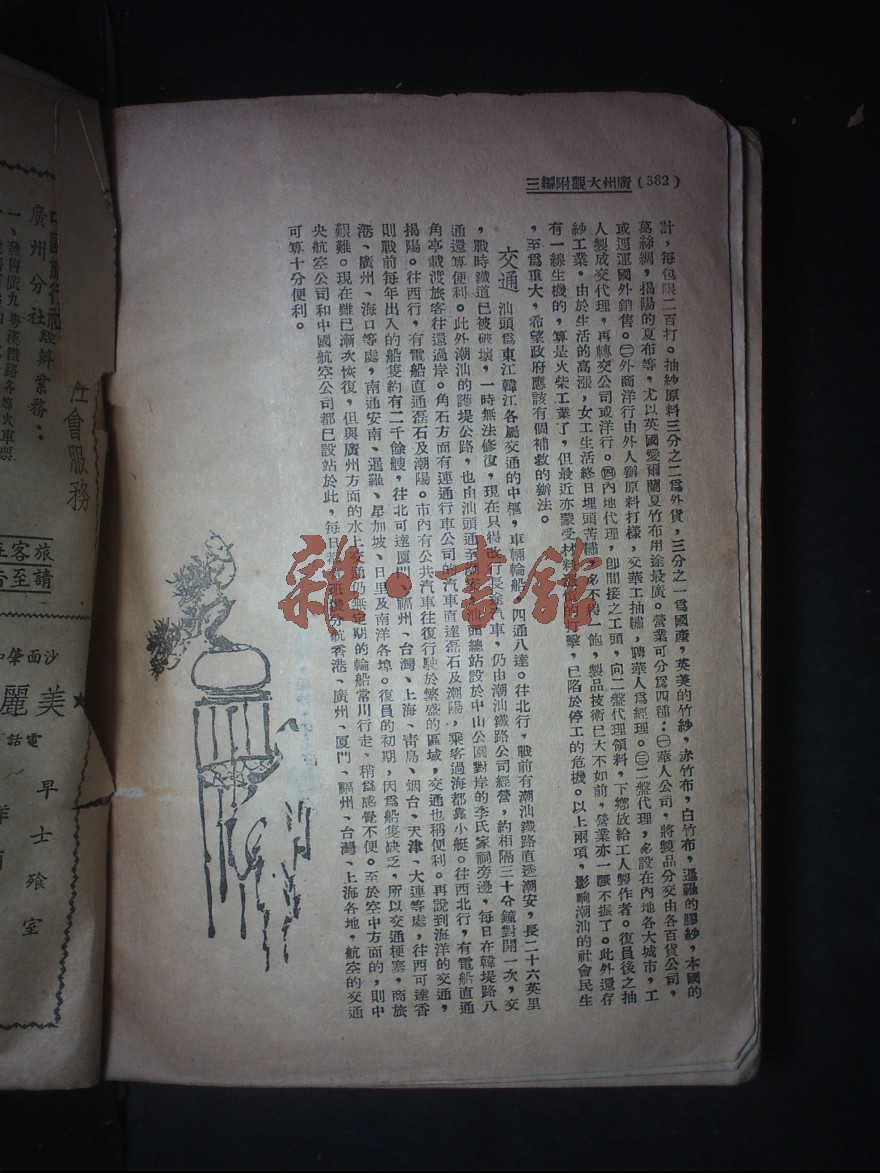 三編附觀大州廣（382）
計，每包限二百打。抽紗原料三分之二爲外貨，三分之一爲國產，英美的竹紗，赤竹布，白竹布，暹羅的膠紗，本國的
葛絲綢，揭陽的夏布等，尤以英國愛爾蘭夏竹布用途最廣。營業可分爲四種：㊀華人公司，將製品分交由各百貨公司，
或運運國外銷售。㊁外商洋行由外人辦原料打樣，交華工抽繡，聘華人爲經理。㊂二盤代理，多設在內地各大城市，工
人製成交代理，再轉交公司或洋行。㊃內地代理，卽間接之工頭，向二盤代理領料，下鄉放給工人製作者。復員後之抽
紗工業，由於生活的高漲，女工生活終日埋頭苦繡，多不得一飽，製品技術已大不如前，營業亦一蹶不振了。此外還有
有一線生機的，算是火柴工業了，但最近亦蒙受材料的擊，已陷於停工的危機。以上兩項，影响潮汕的社會民生
，至爲重大，希望政府應該有個補救的辦法。
交通 汕頭爲東江韓江各屬交通的中樞，車輛輪船，四通八達。往北行，戰前有潮汕鐵路直透潮安，長二十六英里
，戰時鐵道已被破壞，一時無法修復，現在只得改行長途汽車，仍由潮汕鐵路公司經營，約相隔三十分鐘對開一次，交
通還算便利。此外潮汕的護堤公路，也由汕頭通至潮安，汕頭總站設於中山公園對岸的李氏家祠旁邊，每日在韓堤路八
角亭載渡旅客往還過岸。角石方面有連通行車公司的汽車直達磊石及潮陽，乘客過海都靠小艇。往西北行，有電船直通
揭陽。往西行，有電船直通磊石及潮陽。市內有公共汽車往復行駛於繁盛的區域，交通也稱便利。再說到海洋的交通，
則戰前每年出入的船隻約有二千餘艘，往北可達厦門、福州、台灣、上海、靑島、烟台、天津、大連等處，往西可達香
港、廣州、海口等處，南通安南、暹羅、星加坡、日里及南洋各埠。復員的初期，因爲船隻缺乏，所以交通梗塞，商旅
艱難。現在雖已漸次恢復，但與廣州方面的水上交通仍無定期的輪船常川行走，稍爲感覺不便。至於空中方面的，則中
央航空公司和中國航空公司都已設站於此，每日都有班機分航香港、廣州、厦門、福州、台灣、上海各地，航空的交通
可算十分便利。
雜·書館
社會服務
中國旅行社
廣州分社經辦業務：
一、發售廣九粵漢鐵路各等火車票
旅客
請至
沙面肇和
美麗
電話
早士飱室